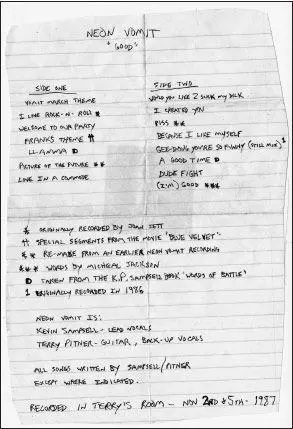 NEON VOMIT
"GOOD"
SIDE ONE
VOMIT MARCH THEME
I LIKE ROCK-N-ROLL *
WELCOME TO OUR PARTY
FRANKS THEME #
LLANWA D
PICTURE OF THE FUTURE **
LIVE IN A COMMODE
SIDE TWO
WOULD YOU LIKE 2 SUCK MY DICK
I CREATED YOU
PISS **
BECAUSE I LIKE MYSELF
GEE-DOUG YOU'RE SO FUNNY (STILL MIX) 1
A GOOD TIME D
DUDE FIGHT
(I'M) GOOD ***
* ORIGINALLY RECORDED BY JOAN JETT
# SPECIAL SEGMENTS FROM THE MOVIE 'BLUE VELVET'
** RE-MADE FROM AN EARLIER NEON VOMIT RECORDING
*** WORDS BY MICHEAL JACKSON
D TAKEN FROM THE K.P. SAMPSELL BOOK 'WORDS OF BATTLE'
1 ORIGINALLY RECORDED IN 1986
NEON VOMIT IS:
KEVIN SAMPSELL - LEAD VOCALS
TERRY PITNER - GUITAR, BACK-UP VOCALS
ALL SONGS WRITTEN BY SAMPSELL/PITNER
EXCEPT WHERE INDICATED.
RECORDED IN TERRY'S ROOM - NOV 2ND & 5TH - 1987